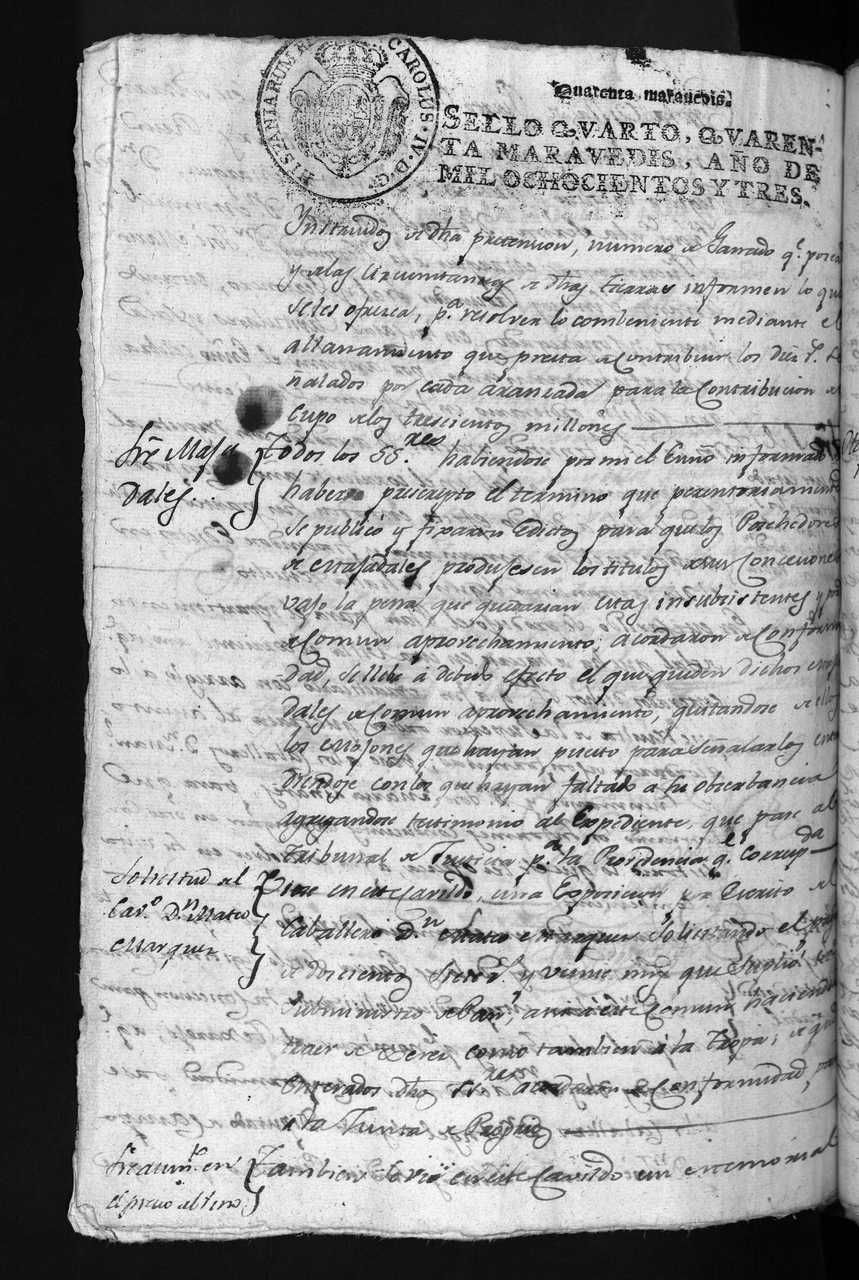 HISPANIARUM RE CAROLUS · IV · D · G ·
Quarenta maravedis.
SELLO QVARTO, QVAREN-
TA MARAVEDIS, AÑO DE
MIL OCHOCIENTOS Y TRES.
Ynstruidos de dha pretension, numero de Ganado qe. posea
y de las circunstancias de dhas tierras informen lo que
seles ofresca, pa. resolver lo combeniente mediante el
allanamiento que presta de Contribuir los diez
ñalados por cada aranzada para la Contribucion
Cupo de los trescientos millones
Sre. Maja
dales
Todos los SS.res habiendose por mi el Essno informado
haberse prescripto el termino que perentoriamente
se publicó y fixaron Edictos para que los Posehedores
de Majadales produjesen los titulos de sus Concesiones
vajo la pena que quedarian estas insubsistentes y
de Comun aprovechamiento; acordaron de Conformi
dad, se llebe á debido efecto el que queden dichos maja
dales de Comun aprovechamiento, quitandose de ellos
los mojones que hayan puesto para señalarlos enten
diendose con los que hayan faltado a su obserbancia
agregandose testimonio al Expediente, que pase al
Tribunal de Justicia pa. la Providencia qe. Corrispda
Solicitud del
Cavo. Dn. Mateo
Marquez
Viose en este Cavildo, una Exposicion por Escrito del
Caballero Dn. Mateo Marquez Solicitando el
de doscientos siete y veinte mrs que suplio
Subministro de Pan, asi á este Comun haciendo
traer de Xerez como tambien a la Tropa; de que
enterados dhos SSres acordaron de Conformidad,
a la Junta de Propios
Sre aumto. en
el precio del vino
Tambien se vió en este Cavildo un memorial